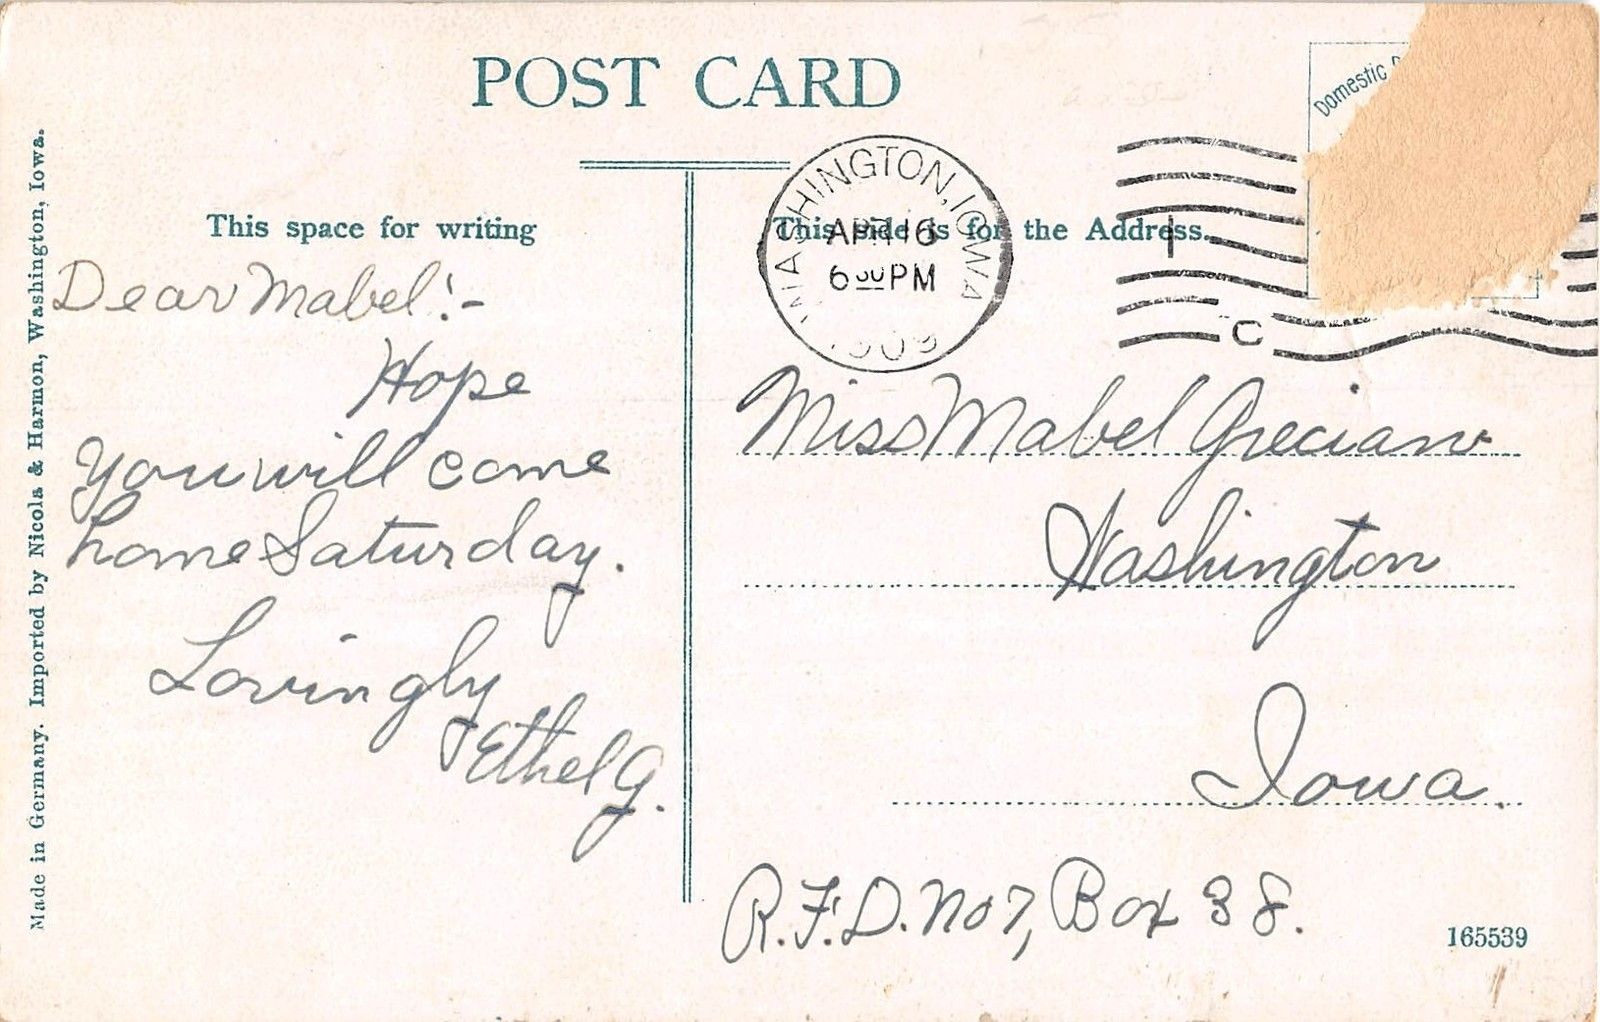 POST CARD
Domestic
WASHINGTON, IOWA
APR 16
6 00 PM
1909
C
This space for writing
This side is for the Address.
Dear Mabel!-
Hope
you will come
home Saturday.
Lovingly
Ethel G.
Miss Mabel Grecian
Washington
Iowa.
R.F.D. No 7, Box 38.
165539
Made in Germany. Imported by Nicola & Harmon, Washington, Iowa.